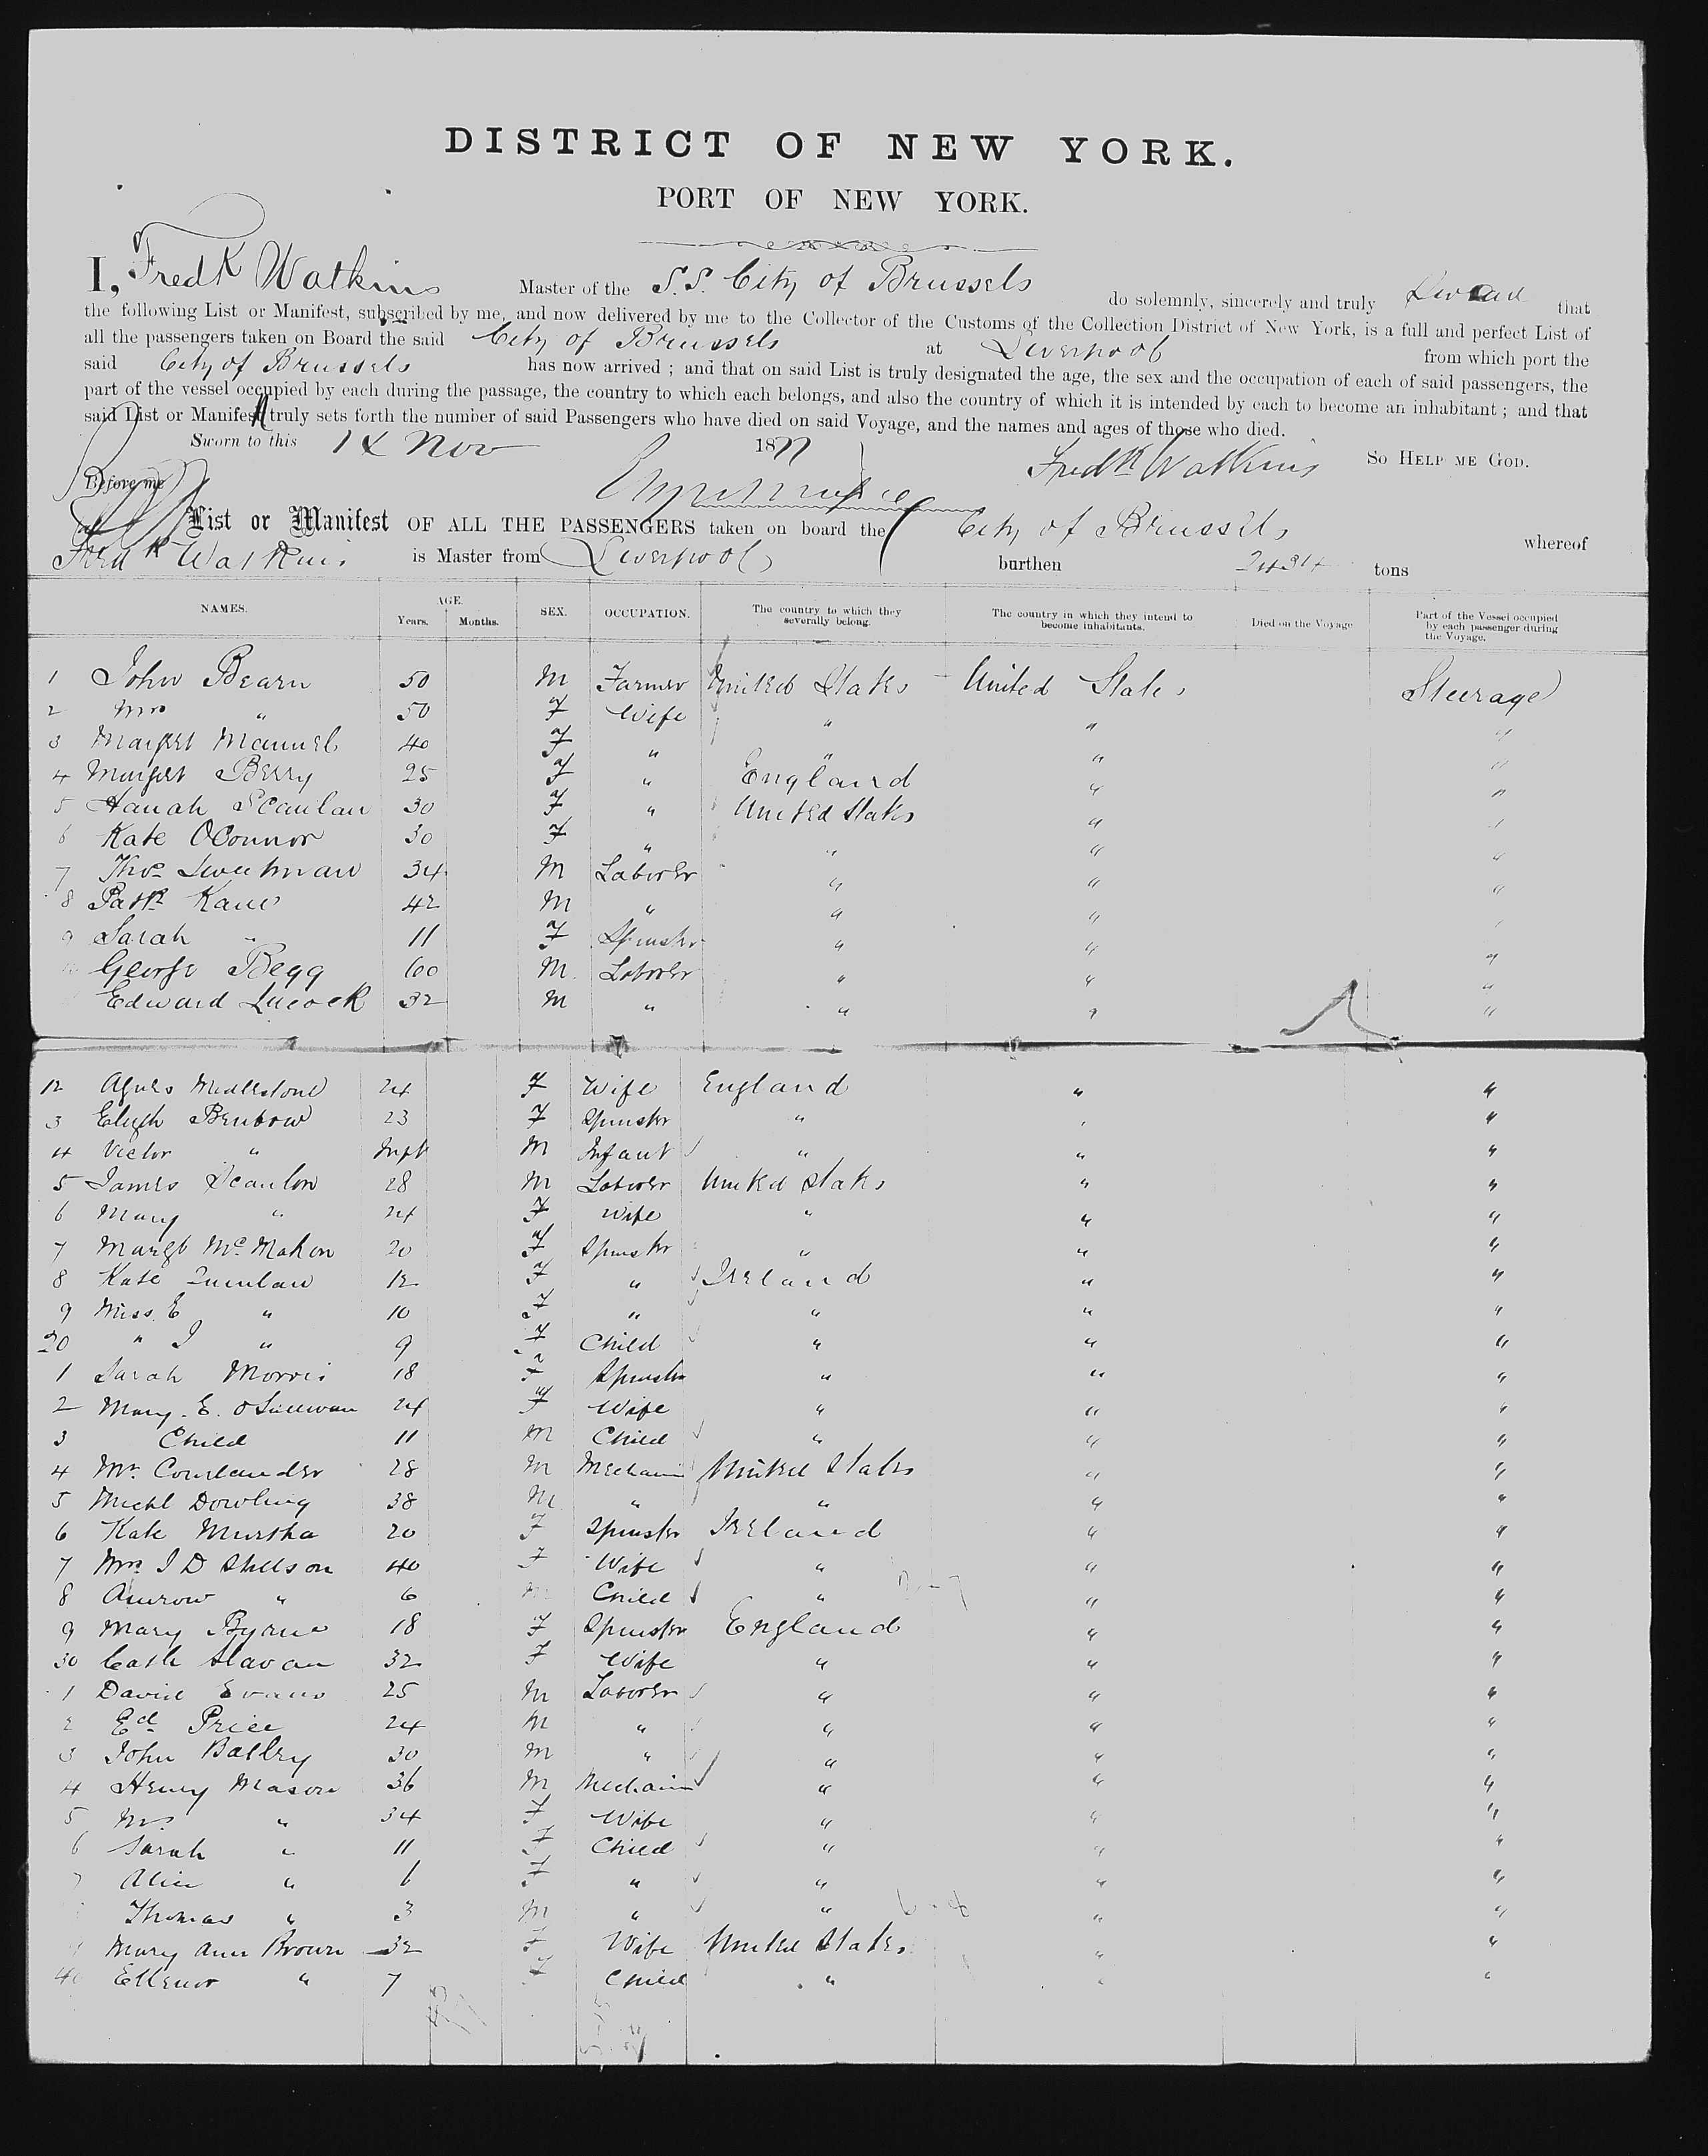 DISTRICT OF NEW YORK.
PORT OF NEW YORK.
I, Fredk Watkins Master of the S.S. City of Brussels do solemnly, sincerely and truly Swear that
the following List or Manifest, subscribed by me, and now delivered by me to the Collector of the Customs of the Collection District of New York, is a full and perfect List of
all the passengers taken on Board the said City of Brussels at Liverpool from which port the
said City of Brussels has now arrived ; and that on said List is truly designated the age, the sex and the occupation of each of said passengers, the
part of the vessel occupied by each during the passage, the country to which each belongs, and also the country of which it is intended by each to become an inhabitant ; and that
said List or Manifest truly sets forth the number of said Passengers who have died on said Voyage, and the names and ages of those who died.
Sworn to this 14 Nov 1877 Fredk Watkins So Help me God.
Before me
List or Manifest OF ALL THE PASSENGERS taken on board the City of Brussels whereof
Fredk Watkins is Master from Liverpool burthen 2434 tons
NAMES. AGE. Years. Months. SEX. OCCUPATION. The country to which they severally belong. The country in which they intend to become inhabitants. Died on the Voyage Part of the Vessel occupied by each passenger during the Voyage.
1 John Bearn 50 M Farmer United States United States Steerage
2 Mrs " 50 F Wife " " "
3 Margret Manuel 40 F " " " "
4 Margret Berry 25 F " England " "
5 Hanah Scanlan 30 F " United States " "
6 Kate OConnor 30 F " " " "
7 Thos Sweetman 34 M Laborer " " "
8 Patk Kane 42 M " " " "
9 Sarah " 11 F Spinster " " "
George Begg 60 M Laborer " " "
Edward Lucock 32 M " " " "
12 Agnes 24 F Wife England " "
3 Benbow 23 F Spinster " " "
4 Victor " Inft M Infant " " "
5 James Scanlon 28 M Laborer United States " "
6 Mary " 24 F Wife " " "
7 Margt McMahon 20 F Spinster " " "
8 Kate Quinlan 12 F " Ireland " "
9 Miss E " 10 F " " " "
20 " J " 9 F Child " " "
1 Sarah Morris 18 F Spinster " " "
2 Mary E. OSullivan 24 F Wife " " "
3 Child 11 M Child " " "
4 Mr. Courlander 28 M Mechanic United States " "
5 Michl Dowling 38 M " " " "
6 Kate Murtha 20 F Spinster Ireland " "
7 Mrs J D Stillson 40 F Wife " " "
8 " 6 M Child " " "
9 Mary Byrne 18 F Spinster England " "
30 Cath Slavan 32 F Wife " " "
1 David Evans 25 M Laborer " " "
2 Ed Price 24 M " " " "
3 John Batley 30 M " " " "
4 Henry Mason 36 M Mechanic " " "
5 Mrs " 34 F Wife " " "
6 Sarah " 11 F Child " " "
7 Alice " 6 F " " " "
Thomas " 3 M " " " "
9 Mary Ann Brown 32 F Wife United States " "
40 Ellenor " 7 F Child " " "